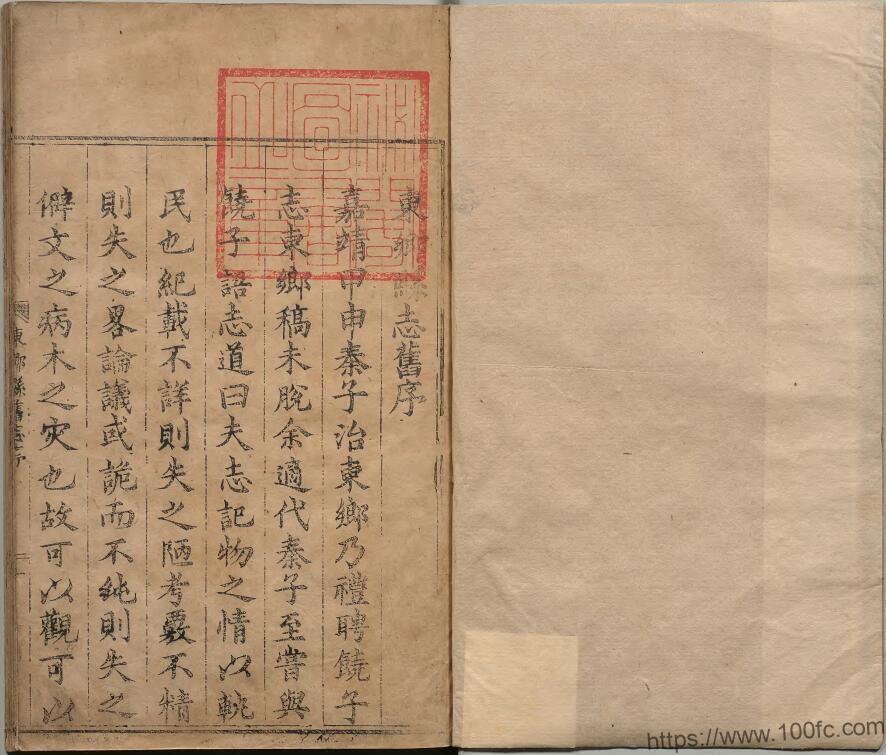 東鄉縣志舊序
嘉靖甲申秦子治東鄉乃禮聘饒子
志東鄉稿未脫余適代秦子至嘗與
饒子語志道曰夫志記物之情以軌
民也紀載不詳則失之陋考覈不精
則失之畧論議或詭而不純則失之
僻文之病木之灾也故可以觀可以
東鄉縣舊志序
https://www.100fc.com